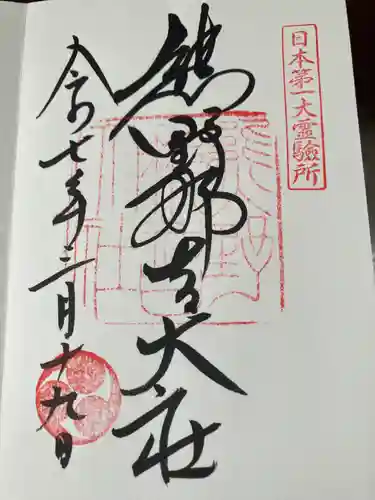 日本第一大霊驗所
熊野那智大社
令和七年三月十九日